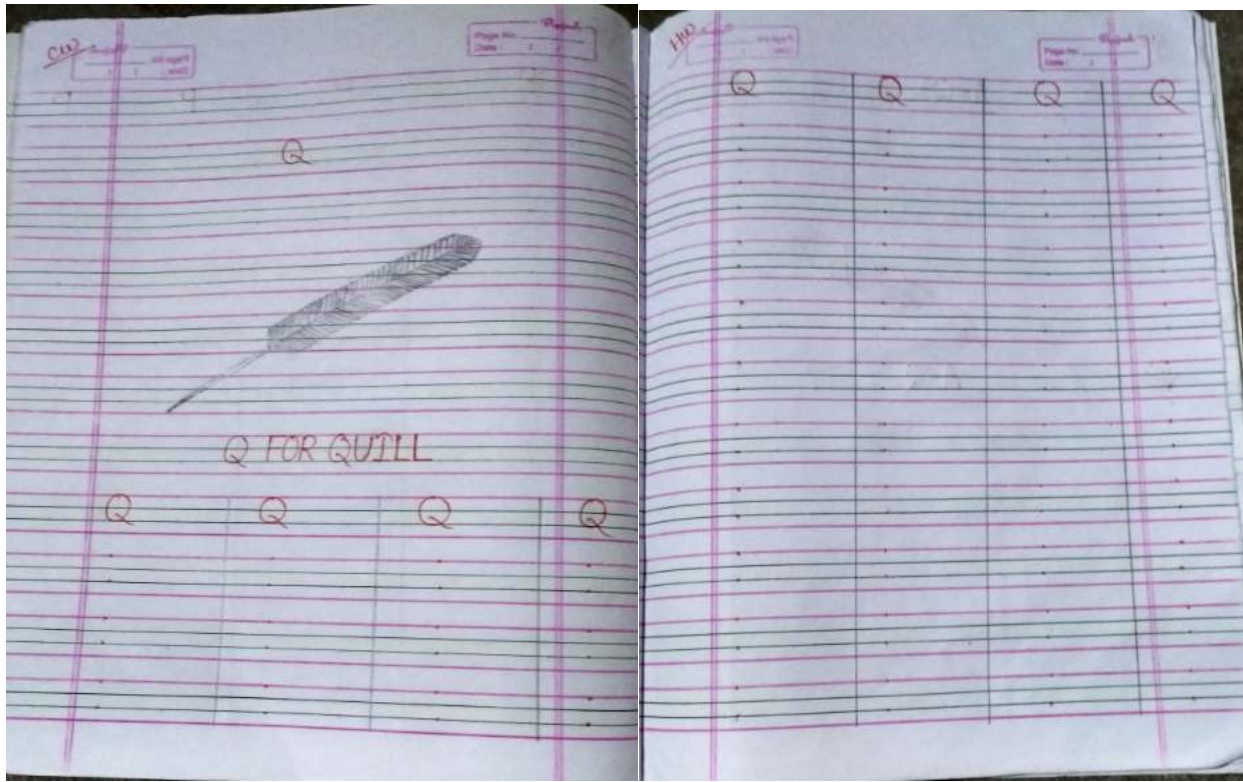 CW
Page No.
Date : / /
Q
Q FOR QUILL
Q Q Q Q
HW
Page No.
Date : / /
Q Q Q Q